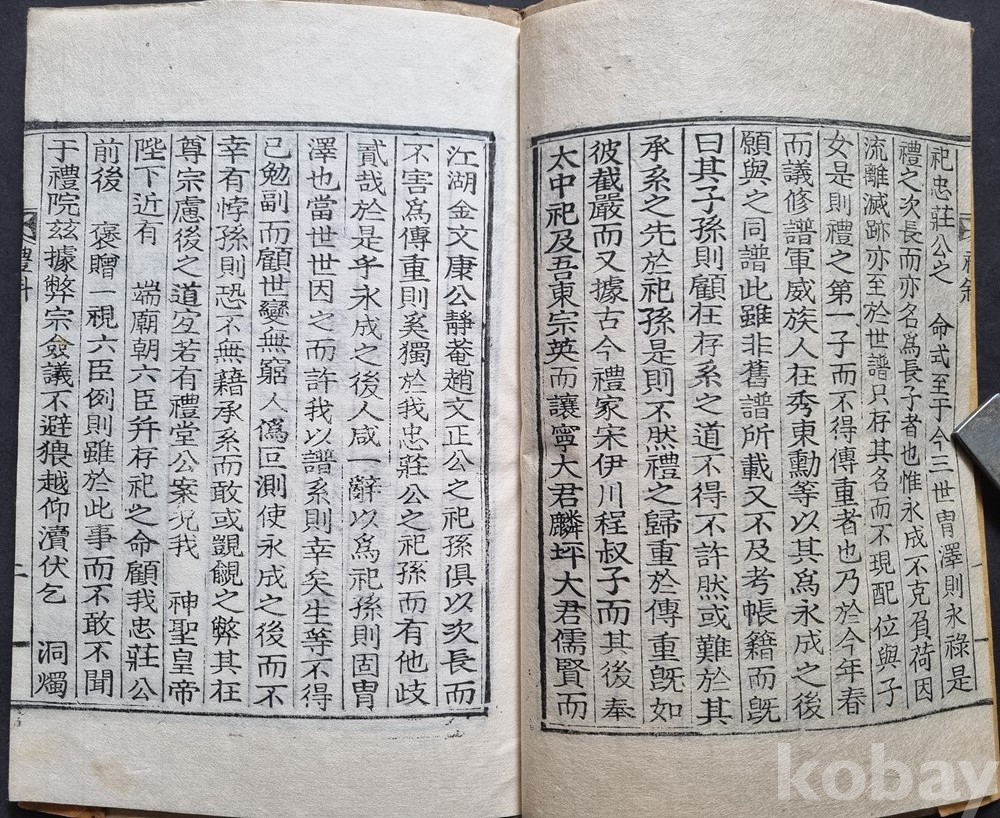 祀忠莊公之 命式至于今三世胄澤則永祿是
禮之次長而亦名爲長子者也惟永成不克負荷因
流離滅跡亦至於世譜只存其名而不現配位與子
女是則禮之第一子而不得傳重者也乃於今年春
而議修譜軍威族人在秀東勳等以其爲永成之後
願與之同譜此雖非舊譜所載又不及考帳籍而旣
曰其子孫則顧在存系之道不得不許然或難於其
承系之先於祀孫是則不然禮之歸重於傳重旣如
彼截嚴而又據古今禮家宋伊川程叔子而其後奉
太中祀及吾東宗英而讓寧大君麟坪大君儒賢而
江湖金文康公靜菴趙文正公之祀孫俱以次長而
不害爲傳重則奚獨於我忠莊公之祀孫而有他歧
貳哉於是乎永成之後人咸一辭以爲祀孫則固胄
澤也當世世因之而許我以譜系則幸矣生等不得
已勉副而顧世變無窮人僞叵測使永成之後而不
幸有悖孫則恐不無藉承系而敢或覬覦之弊其在
尊宗慮後之道宜若有禮堂公案況我 神聖皇帝
陛下近有 端廟朝六臣幷存祀之命顧我忠莊公
前後 褒贈一視六臣例則雖於此事而不敢不聞
于禮院玆據弊宗僉議不避猥越仰瀆伏乞 洞燭
禮斜
二
kobay